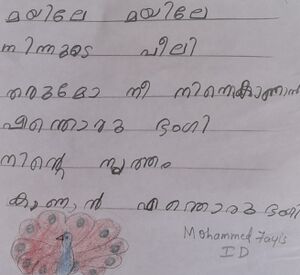 മയിലേ മയിലേ
നിന്നുടെ പീലി
തരുമോ നീ നിന്നെകാണാൻ
എന്തൊരു ഭംഗി
നിൻ്റെ നൃത്തം
കാണാൻ എന്തൊരു ഭംഗി
Mohammed Fayis
I D